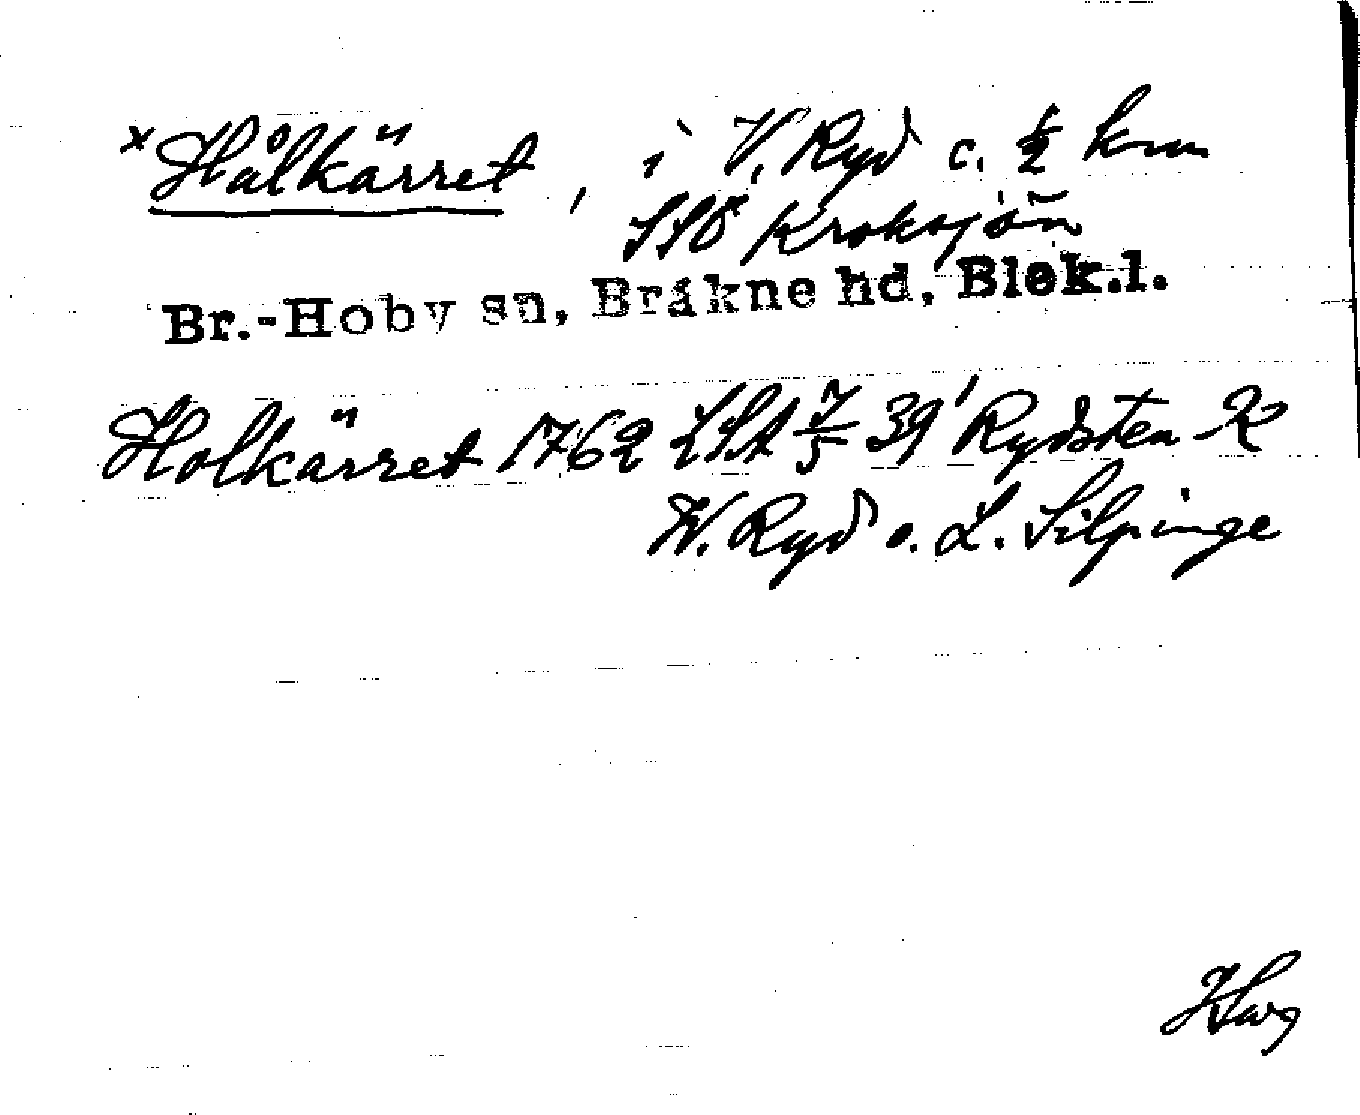 × Hålkärret, i V. Ryd c. ½ km
SSÖ Kroksjön
Br.-Hoby sn, Bråkne hd, Blek.l.
Holkärret 1762 LSA 7/5 39' Rydsten R
W. Ryd o. L. Silpinge